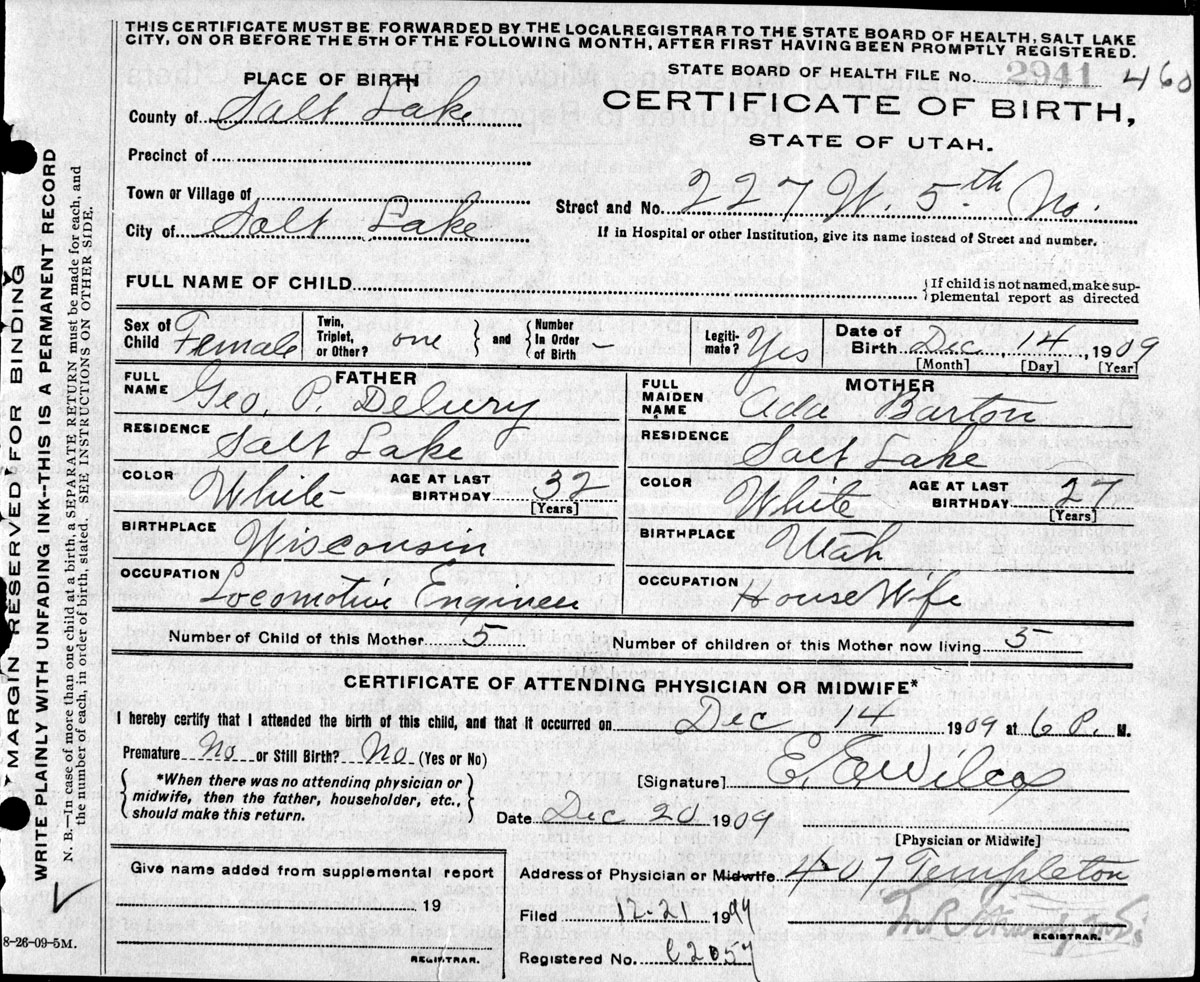 THIS CERTIFICATE MUST BE FORWARDED BY THE LOCAL REGISTRAR TO THE STATE BOARD OF HEALTH, SALT LAKE
CITY, ON OR BEFORE THE 5TH OF THE FOLLOWING MONTH, AFTER FIRST HAVING BEEN PROMPTLY REGISTERED.
PLACE OF BIRTH
STATE BOARD OF HEALTH FILE No. 2941 460
County of Salt Lake
CERTIFICATE OF BIRTH,
STATE OF UTAH.
Precinct of
Town or Village of
Street and No. 227 W. 5th No.
City of Salt Lake
If in Hospital or other Institution, give its name instead of Street and number.
FULL NAME OF CHILD
{If child is not named, make sup-
plemental report as directed
Sex of Child Female
Twin, Triplet, or Other? one
{and} {Number In Order of Birth –
Legiti-mate? Yes
Date of Birth Dec, 14, 1909
[Month] [Day] [Year]
FATHER
FULL NAME Geo. P. Delury
RESIDENCE Salt Lake
COLOR White AGE AT LAST BIRTHDAY 32
[Years]
BIRTHPLACE Wisconsin
OCCUPATION Locomotive Engineer
MOTHER
FULL MAIDEN NAME Ada Barton
RESIDENCE Salt Lake
COLOR White AGE AT LAST BIRTHDAY 27
[Years]
BIRTHPLACE Utah
OCCUPATION House Wife
Number of Child of this Mother 5 Number of children of this Mother now living 5
CERTIFICATE OF ATTENDING PHYSICIAN OR MIDWIFE*
I hereby certify that I attended the birth of this child, and that it occurred on Dec 14 1909 at 6 P. M.
Premature No or Still Birth? No (Yes or No)
[Signature] E. E. Wilcox
{*When there was no attending physician or
midwife, then the father, householder, etc.,
should make this return.}
Date Dec 20 1909
[Physician or Midwife]
Give name added from supplemental report
19
REGISTRAR.
Address of Physician or Midwife 407 Templeton
Filed 12-21 19
REGISTRAR.
Registered No.
8-26-09-5M.
MARGIN RESERVED FOR BINDING
WRITE PLAINLY WITH UNFADING INK--THIS IS A PERMANENT RECORD
N. B.—In case of more than one child at a birth, a SEPARATE RETURN must be made for each, and
the number of each, in order of birth, stated. SEE INSTRUCTIONS ON OTHER SIDE.